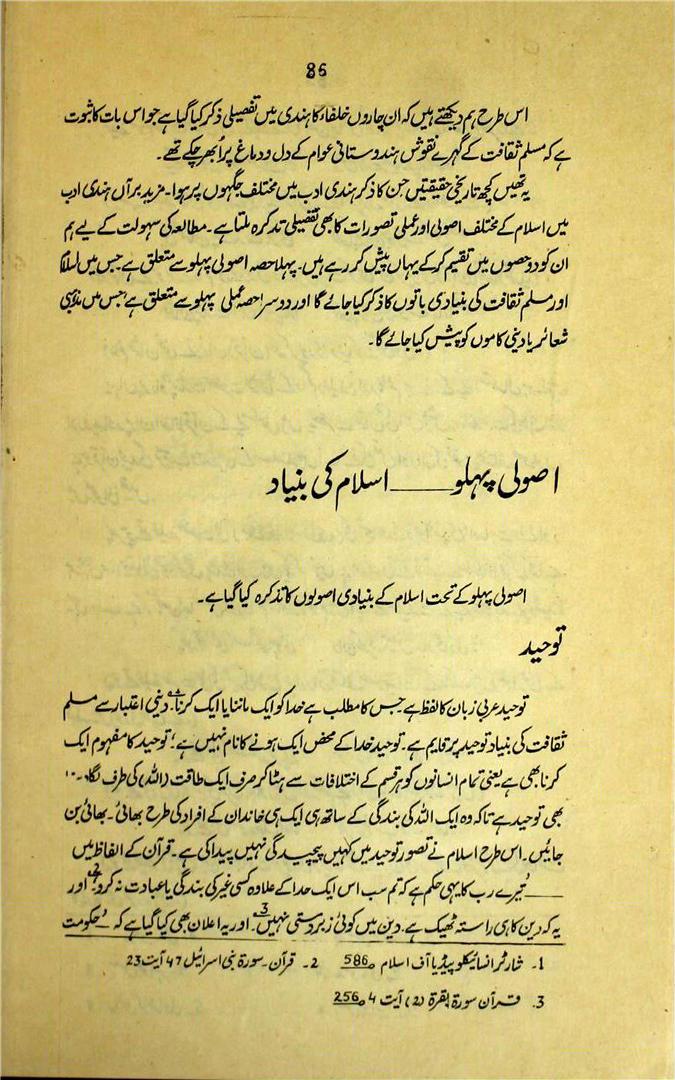 86
اس طرح ہم دیکھتے ہیں کہ ان چاروں خلفاء کا ہندی میں تفصیلی ذکر کیا گیا ہے جو اس بات کا ثبوت
ہے کہ مسلم ثقافت کے گہرے نقوش ہندوستانی عوام کے دل و دماغ پر اُبھر چکے تھے۔
یہ تھیں کچھ تاریخی حقیقتیں جن کا ذکر ہندی ادب میں مختلف جگہوں پر ہوا۔ مزید برآں ہندی ادب
میں اسلام کے مختلف اصولی اور عملی تصورات کا بھی تفصیلی تذکرہ ملتا ہے۔ مطالعہ کی سہولت کے لیے ہم
ان کو دو حصوں میں تقسیم کر کے یہاں پیش کر رہے ہیں۔ پہلا حصہ اصولی پہلو سے متعلق ہے جس میں اسلام
اور مسلم ثقافت کی بنیادی باتوں کا ذکر کیا جائے گا اور دوسرا حصہ عملی پہلو سے متعلق ہے، جس میں مذہبی
شعائر یا دینی کاموں کو پیش کیا جائے گا۔
اصولی پہلو ــــــ اسلام کی بنیاد
اصولی پہلو کے تحت اسلام کے بنیادی اصولوں کا تذکرہ کیا گیا ہے۔
توحید
توحید عربی زبان کا لفظ ہے جس کا مطلب ہے خدا کو ایک ماننا یا ایک کرنا۔ دینی اعتبار سے مسلم
ثقافت کی بنیاد توحید پر قایم ہے۔ توحید خدا کے محض ایک ہونے کا نام نہیں ہے، توحید کا مفہوم ایک
کرنا بھی ہے یعنی تمام انسانوں کو ہر قسم کے اختلافات سے ہٹا کر صرف ایک طاقت (اللہ) کی طرف
بھی توحید ہے تاکہ وہ ایک اللہ کی بندگی کے ساتھ ہی ایک ہی خاندان کے افراد کی طرح بھائی۔ بھائی بن
جائیں۔ اس طرح اسلام نے تصور توحید میں کہیں پیچیدگی نہیں پیدا کی ہے۔ قرآن کے الفاظ میں
ــــ "تیرے رب کا یہی حکم ہے کہ تم سب اس ایک خدا کے علاوہ کسی غیر کی بندگی یا عبادت نہ کرو"2 اور
یہ کہ دین کا ہی راستہ ٹھیک ہے۔ دین میں کوئی زبردستی نہیں3۔ اور یہ اعلان بھی کیا گیا ہے کہ "حکومت
1۔ شارٹر انسائیکلوپیڈیا آف اسلام ص 586 2۔ قرآن۔ سورۃ بنی اسرائیل 47 آیت 23
3۔ قرآن سورۃ بقرۃ (2) آیت 4 ص 256